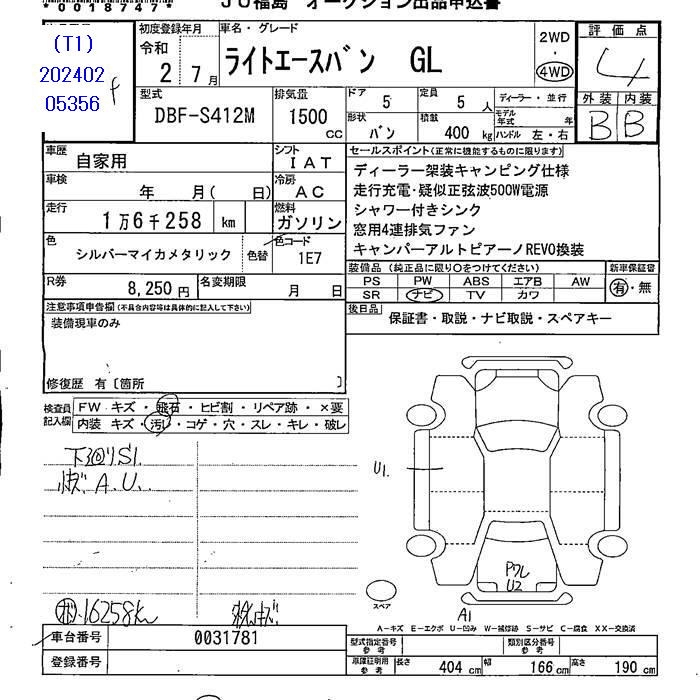 *0018747*
JU福島 オークション出品申込書
(T1)
202402
05356
f
初度登録年月
令和
2年7月
車名・グレード
ライトエースバン GL
2WD
・
4WD
評価点
4
外装 内装
B B
型式
DBF-S412M
排気量
1500
CC
ドア 5
定員 5人
ディーラー・並行
形状 バン
積載 400kg
モデル年式 年
ハンドル 左・右
車歴
自家用
シフト
IAT
車検
年 月( 日)
冷房
AC
走行
1万6千258 km
燃料
ガソリン
色
シルバーマイカメタリック
色替
色コード
1E7
R券
8,250円
名変期限
月 日
セールスポイント(正常に機能するものに限ります)
ディーラー架装キャンピング仕様
走行充電・疑似正弦波500W電源
シャワー付きシンク
窓用4連排気ファン
キャンパーアルトピアーノREVO換装
装備品(純正品に限り○をつけてください)
新車保証書
PS PW ABS エアB AW
SR ナビ TV カワ
有・無
後日品
保証書・取説・ナビ取説・スペアキー
注意事項申告欄(不具合内容等は具体的に記入して下さい)
装備現車のみ
修復歴 有〔箇所 〕
検査員
記入欄
FW キズ・飛石・ヒビ割・リペア跡・×要
内装 キズ・汚レ・コゲ・穴・スレ・キレ・破レ
下回リS1.
A.U.
U1.
PWし
U2
A1
スペア
16258km
A-キズ E-エクボ U-凹み W-補修跡 S-サビ C-腐食 XX-交換済
車台番号
0031781
登録番号
型式指定番号
参考
類別区分番号
参考
車庫証明用
参考
長さ 404cm
幅 166cm
高さ 190cm